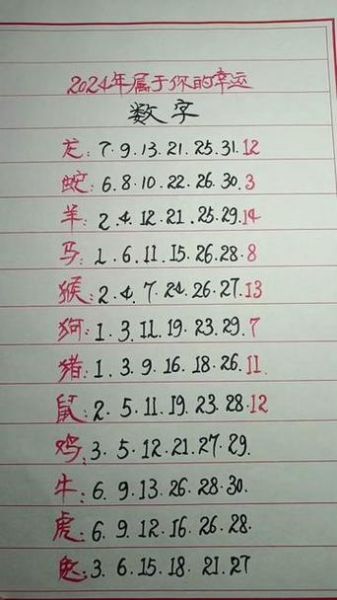 2024年属于你的幸运
数字
龙:7.9.13.21.25.31.12
蛇:6.8.10.22.26.30.3
羊:2.4.12.21.25.29.14
马:1.6.11.15.26.28.8
猴:2.4.7.24.26.27.13
狗:1.3.11.19.23.29.7
猪:1.3.9.16.18.26.11
鼠:2.5.11.19.23.28.12
鸡:3.5.12.21.27.29.
牛:6.9.13.26.28.30.
虎:6.9.12.16.26.28.
兔:3.6.15.18.21.27